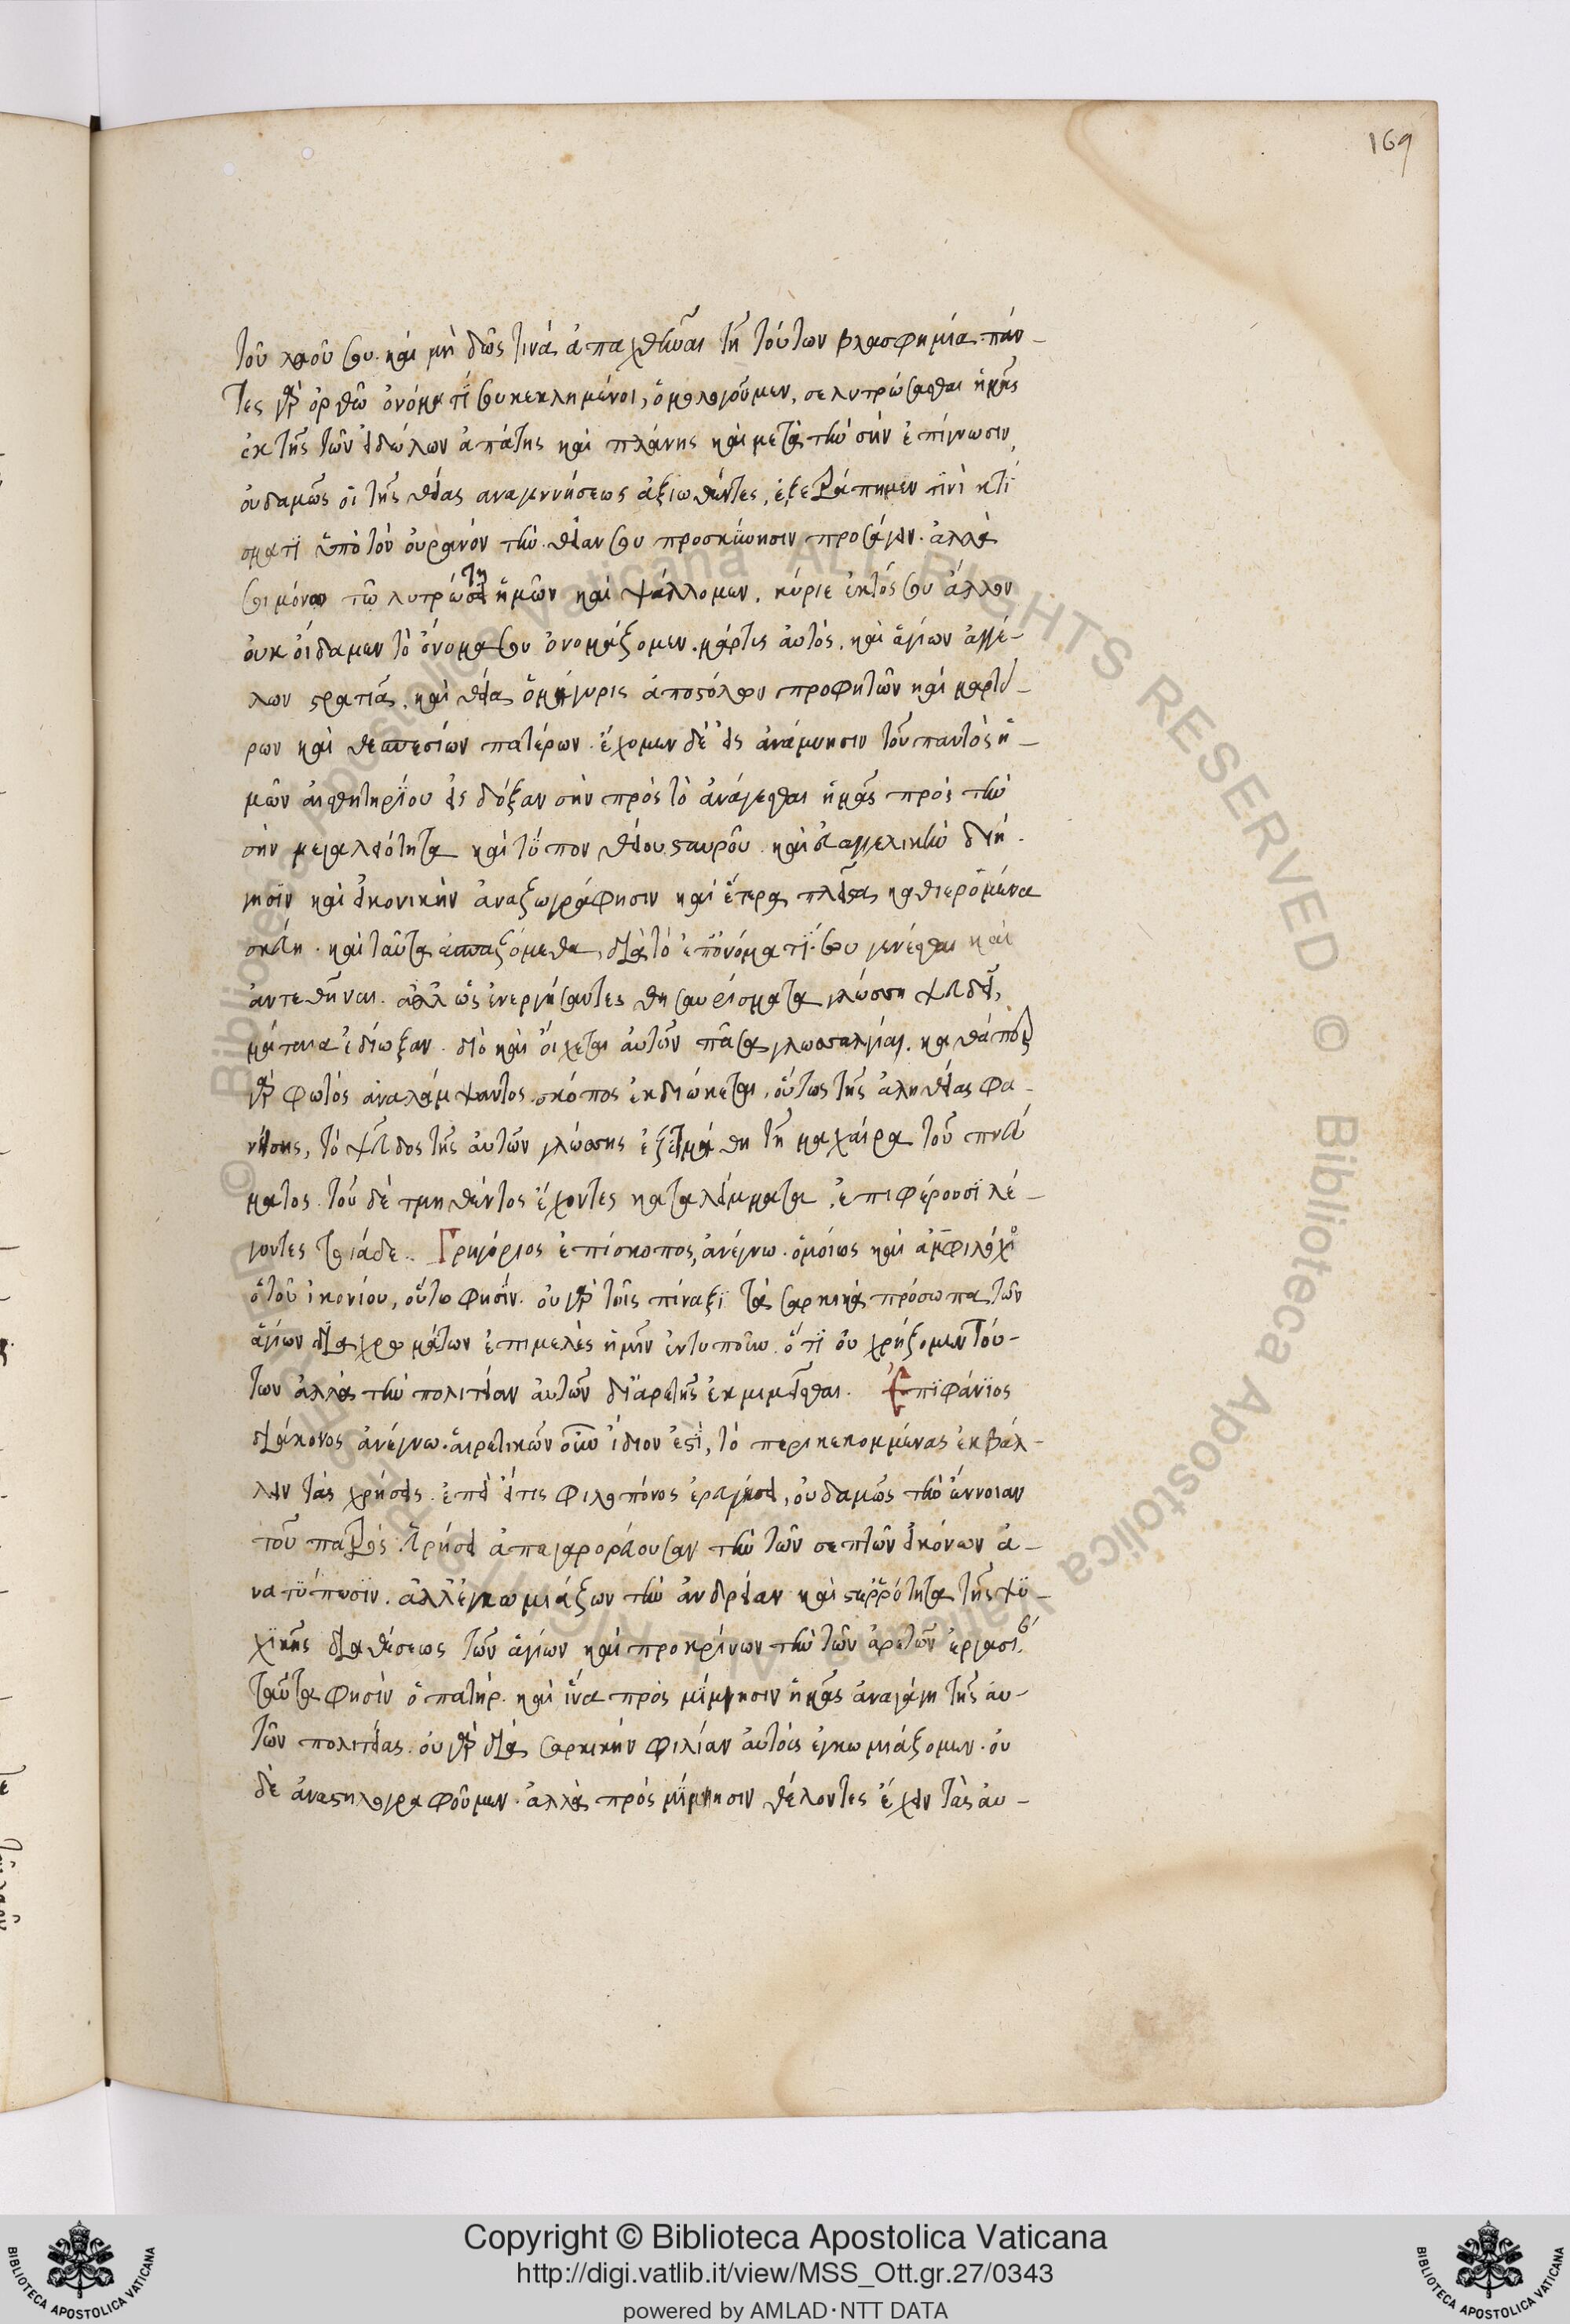 169
τοῦ λαοῦ σου. καὶ μὴ δῶς τινὰ ἀπαχθῆναι τῆ τούτων βλασφημία. πάν-
τες γὰρ ὀρθῶ ὀνόματί σου κεκλημένοι, ὁμολογοῦμεν, σε λυτρώσασθαι ἡμᾶς
ἐκ τῆς τῶν εἰδώλων ἀπάτης καὶ πλάνης καὶ μετὰ τὴν σὴν ἐπίγνωσιν,
οὐδαμῶς οἱ τῆς θείας αναγεννήσεως ἀξιωθέντες, ἐξετράπημεν τινὶ κτί
σματι ὑπὸ τὸν οὐρανὸν τὴν θείαν σου προσκύνησιν προσάγειν. ἀλλὰ
σοι μόνω τῶ λυτρώτῆ ἡμῶν καὶ ψάλλομεν. κύριε ἐκτός σου ἄλλον
οὐκ οἴδαμεν τὸ ὄνομά σου ὀνομάζομεν. μάρτις ἀυτὸς. καὶ ἁγίων ἀγγέ-
λων στρατιὰ. καὶ θεία ὁμήγυρις ἀποστόλων προφητῶν καὶ μαρτύ-
ρων καὶ θεσπεσίων πατέρων. ἔχομεν δὲ εἰς ἀνάμνησιν τοῦ παντὸς ἡ-
μῶν αἰσθητηρίου εἰς δόξαν σὴν πρὸς τὸ ἀνάγεσθαι ἡμᾶς πρὸς τὴν
σὴν μεγαλειότητα καὶ τύπον θείου σταυροῦ. καὶ εὐαγγελικὴν διή-
γησιν καὶ εἰκονικὴν ἀναζωγράφησιν καὶ ἕτερα πλεῖστα καθιερομένα
σκεύη. καὶ ταῦτα ἀσπαζόμεθα, διὰ τὸ ἐπ' ὀνόματί σου γενέσθαι καὶ
ἀντεθῆναι. ἀλλ' ὡς ἐνεργήσαντες θησαυρίσματα γλώσση ψευδεῖ,
μάταια ἐδίωξαν. διὸ καὶ οἴχεται ἀυτῶν πᾶσα γλωσσαλγία. καθάπερ
γὰρ φωτὸς ἀναλάμψαντος σκότος ἐκδιώκεται, οὕτως τῆς ἀληθείας φα-
νείσης, τὸ ψεῦδος τῆς ἀυτῶν γλώσσης ἐξετμήθη τῆ μαχαίρα τοῦ πνεύ
ματος. τοῦ δὲ τμηθέντος ἔχοντες καταλείμματα, ἐπιφέρουσι λέ-
γοντες τοιάδε.. Γρηγόριος ἐπίσκοπος, ἀνέγνω. ὁμοίως καὶ ἀμφιλόχιος
ὁ τοῦ ἰκονίου, οὕτω φησίν. οὐ γὰρ τοῖς πίναξι τὰ σαρκικὰ πρόσωπα τῶν
ἁγίων διὰ χρωμάτων ἐπιμελὲς ἡμῖν ἐντυποῦν. ὅτι οὐ χρήζομεν τού-
των ἀλλὰ τὴν πολιτείαν ἀυτῶν δι' ἀρετῆς ἐκμιμεῖσθαι. Ἐπιφάνιος
διάκονος ἀνέγνω. αἱρετικῶν οἶον ἴδιον ἐστὶ, τὸ περικεκομμένας ἐκβάλ-
λειν τὰς χρήσεις. ἐπεὶ εἴτις φιλοπόνος ἐραγήσει, οὐδαμῶς τὴν ἔννοιαν
τοῦ πατρὸς εὑρήσει ἀπαγορεύουσαν τὴν τῶν σεπτῶν εἰκόνων ἀ-
νατύπωσιν. ἀλλ' ἐγκωμιάζων τὴν ἀνδρείαν καὶ στερρότητα τῆς ψυ-
χικῆς διαθέσεως τῶν ἁγίων καὶ προκρίνων τὴν τῶν ἀρετῶν ἐργασίαν
ταῦτα φησὶν ὁ πατὴρ. καὶ ἵνα πρὸς μίμησιν ἡμᾶς ἀναγάγη τῆς ἀυ-
τῶν πολιτείας. οὐ γὰρ διὰ σαρκικὴν φιλίαν ἀυτοὺς ἐγκωμιάζομεν. ὀυ
δὲ ἀναστηλογραφοῦμεν. ἀλλὰ πρὸς μίμησιν θέλοντες ἔχειν τὰς ἀυ-
© Biblioteca Apostolica Vaticana ALL RIGHTS RESERVED
Copyright © Biblioteca Apostolica Vaticana
http://digi.vatlib.it/view/MSS_Ott.gr.27/0343
powered by AMLAD·NTT DATA
BIBLIOTECA APOSTOLICA VATICANA
BIBLIOTECA APOSTOLICA VATICANA